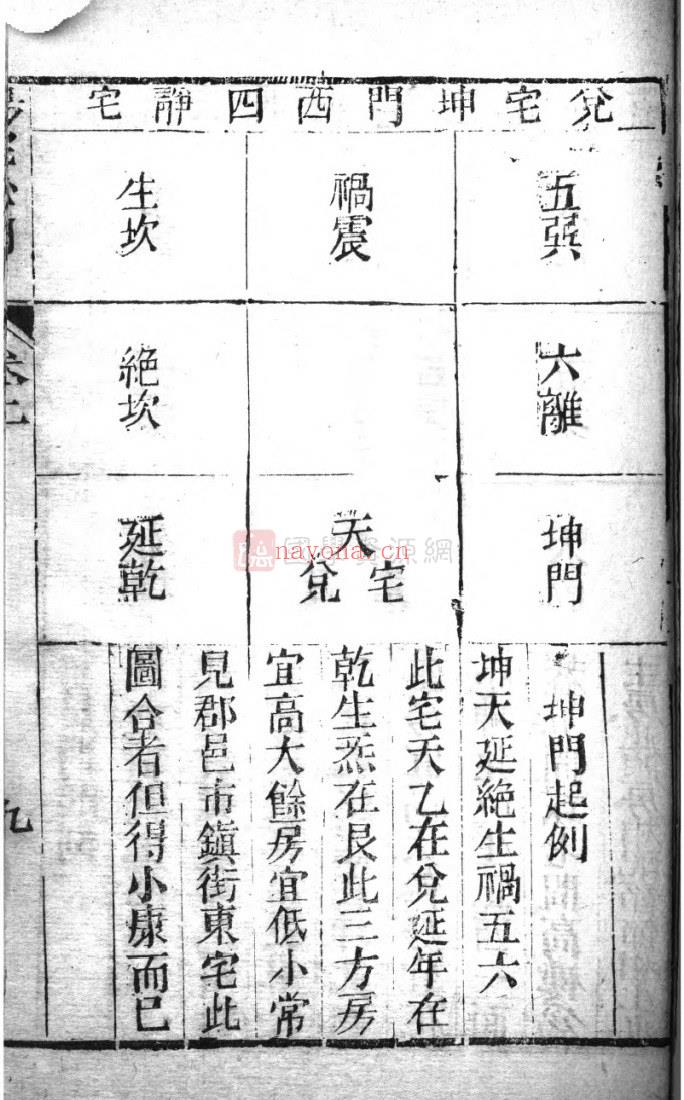 兌宅坤門西四靜宅
五巽
禍震
生坎
六離
絕坎
坤門
天
宅
兌
延乾
坤門起例
坤天延絕生禍五六
此宅天乙在兌延年在
乾生炁在艮此三方房
宜高大餘房宜低小常
見郡邑市鎮街東宅此
圖合者但得小康而已
九
國學資源網
nayona.cn